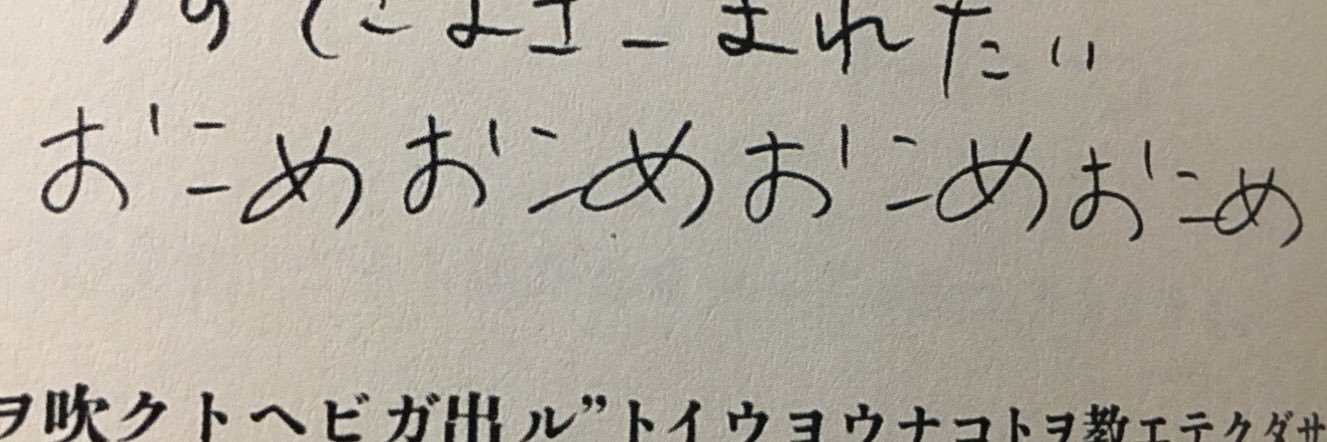 まれたい
おこめおこめおこめおこめ
ヲ吹クトヘビガ出ル”トイウヨウナコトヲ教エテクダサ